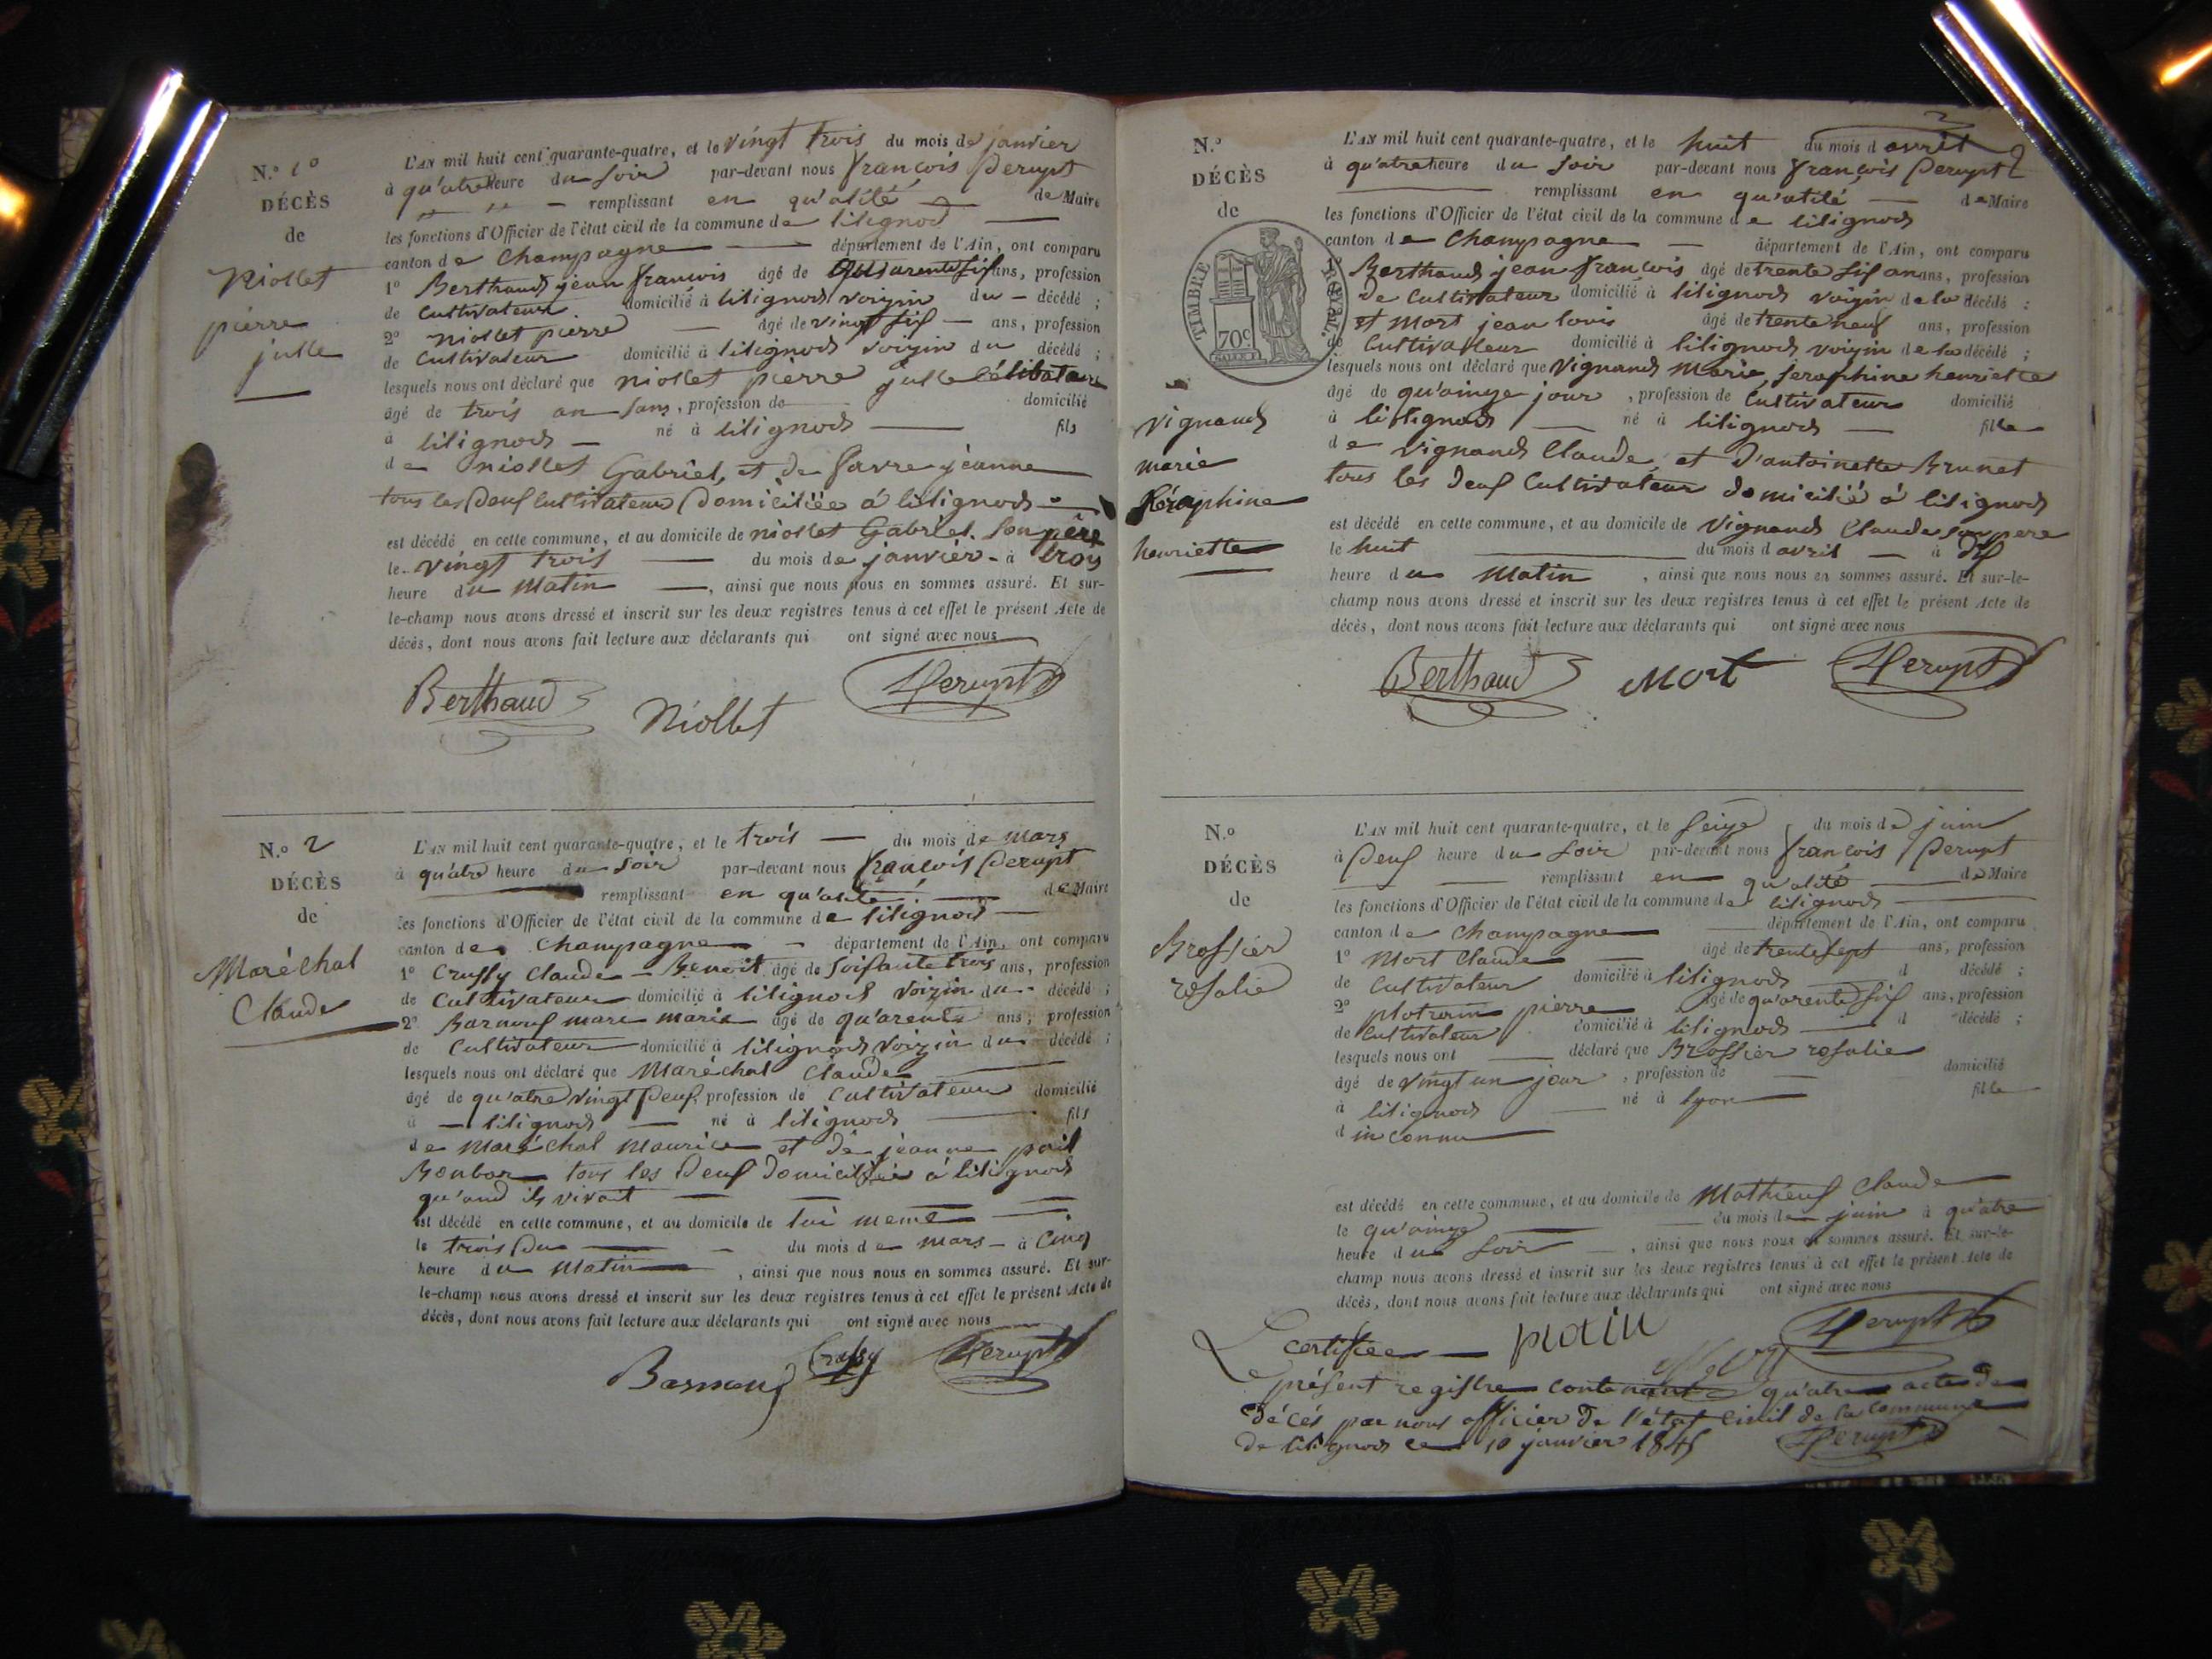 N.º 1º
DÉCÈS
de
Niollet
pierre
julle
L'AN mil huit cent quarante-quatre, et le vingt trois du mois de janvier
à qu'atre heure du soir par-devant nous françois Perupt
remplissant en qu'alité de Maire
les fonctions d'Officier de l'état civil de la commune de lilignod
canton de Champagne département de l'Ain, ont comparu
1º Berthaud jean françois âgé de quarente sif ans, profession
de Cultivateur domicilié à lilignod voizin du décédé ;
2º niollet pierre âgé de vingt sif ans, profession
de Cultivateur domicilié à lilignod voizin du décédé ;
lesquels nous ont déclaré que niollet pierre julle Célibataire
âgé de trois an sans, profession de domicilié
à lilignod né à lilignod fils
de niollet Gabriel, et de favre jeanne
tous les Deuf Cultivateur Domiciliée à lilignod
est décédé en cette commune, et au domicile de niollet Gabriel son père
le vingt trois du mois de janvier à trois
heure du Matin, ainsi que nous nous en sommes assuré. Et sur-
le-champ nous avons dressé et inscrit sur les deux registres tenus à cet effet le présent Acte de
décès, dont nous avons fait lecture aux déclarants qui ont signé avec nous
Berthaud Niollet Perupt
N.º 2
DÉCÈS
de
Maréchal
Claude
L'AN mil huit cent quarante-quatre, et le trois du mois de mars
à qu'atre heure du soir par-devant nous françois Perupt
remplissant en qu'alité de Maire
les fonctions d'Officier de l'état civil de la commune de lilignod
canton de Champagne département de l'Ain, ont comparu
1º Crussy Claude Benoit âgé de soifante trois ans, profession
de Cultivateur domicilié à lilignod voizin du décédé ;
2º marc marie âgé de qu'arente ans, profession
de Cultivateur domicilié à lilignod voizin du décédé ;
lesquels nous ont déclaré que Maréchal Claude
âgé de qu'atre vingt Deuf, profession de Cultivateur domicilié
à lilignod né à lilignod fils
de Maréchal Maurice et de jeanne
tous les Deuf domiciliée à lilignod
qu'and ils vivait
est décédé en cette commune, et au domicile de lui meme
le trois Du du mois de mars à Cinq
heure du Matin, ainsi que nous nous en sommes assuré. Et sur-
le-champ nous avons dressé et inscrit sur les deux registres tenus à cet effet le présent Acte de
décès, dont nous avons fait lecture aux déclarants qui ont signé avec nous
Crussy Perupt
2
N.º
DÉCÈS
de
TIMBRE ROYAL.
70c
vignand
marie
séraphine
henriette
L'AN mil huit cent quarante-quatre, et le huit du mois d avril
à qu'atre heure du soir par-devant nous françois Perupt
remplissant en qu'atilé de Maire
les fonctions d'Officier de l'état civil de la commune de lilignod
canton de Champagne département de l'Ain, ont comparu
Berthaud jean françois âgé de trente sif an ans, profession
de Cultivateur domicilié à lilignod voizin de la décédé ;
et Mort jean louis âgé de trente neuf ans, profession
de Cultivateur domicilié à lilignod voizin de la décédé ;
lesquels nous ont déclaré que vignand Marie seraphine henriette
âgé de qu'ainze jour, profession de Cultivateur domicilié
à lilignod né à lilignod fille
de vignand Claude, et d'antoinette Brunet
tous les Deuf Cultivateur domicilié à lilignod
est décédé en cette commune, et au domicile de Vignand Claude son pere
le huit du mois d avril à dif
heure du Matin, ainsi que nous nous en sommes assuré. Et sur-le-
champ nous avons dressé et inscrit sur les deux registres tenus à cet effet le présent Acte de
décès, dont nous avons fait lecture aux déclarants qui ont signé avec nous
Berthaud Mort Perupt
N.º
DÉCÈS
de
Brossier
rosalie
L'AN mil huit cent quarante-quatre, et le seize du mois de juin
à Deuf heure du soir par-devant nous françois Perupt
remplissant en qu'alité de Maire
les fonctions d'Officier de l'état civil de la commune de lilignod
canton de Champagne département de l'Ain, ont comparu
1º Mort Claude âgé de trente sept ans, profession
de Cultivateur domicilié à lilignod d décédé ;
2º pierre âgé de qu'arente sif ans, profession
de Cultivateur domicilié à lilignod d décédé ;
lesquels nous ont déclaré que Brossier rosalie
âgé de vingt un jour, profession de domicilié
à lilignod né à lyon fille
d inconnu
est décédé en cette commune, et au domicile de Mathieuf Claude
le qu'ainze du mois de juin à qu'atre
heure du soir, ainsi que nous nous en sommes assuré. Et sur-le-
champ nous avons dressé et inscrit sur les deux registres tenus à cet effet le présent Acte de
décès, dont nous avons fait lecture aux déclarants qui ont signé avec nous
Certifiee Perupt
Le présent registre contenant qu'atre acte de
décés par nous officier de l'état Civil de la Commune
de lilignod ce 10 janvier 1845 Perupt